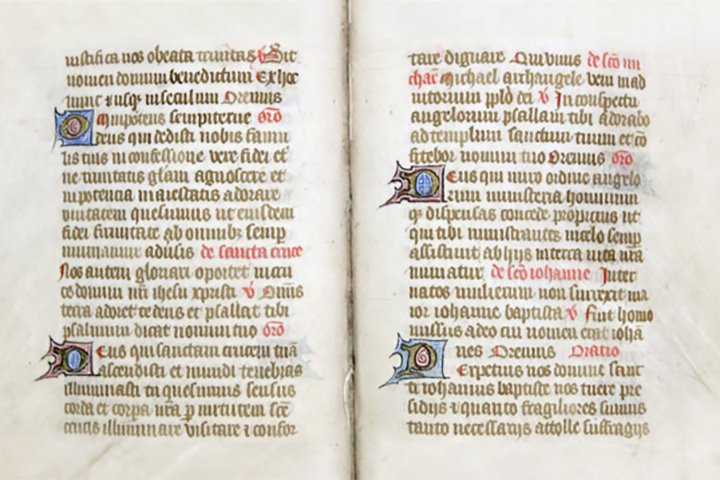 iustifica nos o beata trinitas v Sit
nomen domini benedictum Ex hoc
nunc et usq in seculum Oremus
Omnipotens sempiterne oro
deus qui dedisti nobis famu
lis tuis in confessione vere fidei et
ne trinitatis glam agnoscere et
in potencia maiestatis adorare
unitatem quesumus ut eiusdem
fidei firmitate ab omnibz semp
muniamur adusis de sancta cruce
Nos autem gloriari oportet in cru
ce domini nri ihesu xpristi v Omis
terra adoret te deus et psallat tibi
psalmum dicat nomini tuo oro
Deus qui sanctam crucem tua
ascendisti et mundi tenebras
illuminasti tu quesumus sensus
corda et corpa nra p virtutem sce
crucis illuminare visitare et confor
tare dignare Qui vivis de sco mi
chae Michael archangele veni in ad
iutorium pplo dei v In conspectu
angelorum psallam tibi adorabo
ad templum sanctum tuum et co
fitebor nomini tuo Oremus oro
Deus qui miro ordine angelo
rum ministeria hominum
q dispensas concede propicius ut
qui tibi ministrantes in celo semp
assistunt ab hijs in terra vita nra
muniatur de sco iohanne Inter
natos mulierum non surrexit ma
ior iohanne baptista v Fuit homo
missus a deo cui nomen erat ioha
nes Oremus Oratio
Perpetuis nos domine sanc
ti iohannis baptiste nos tuere pre
sidijs et quanto fragiliores sumus
tanto necessarijs attolle suffragijs